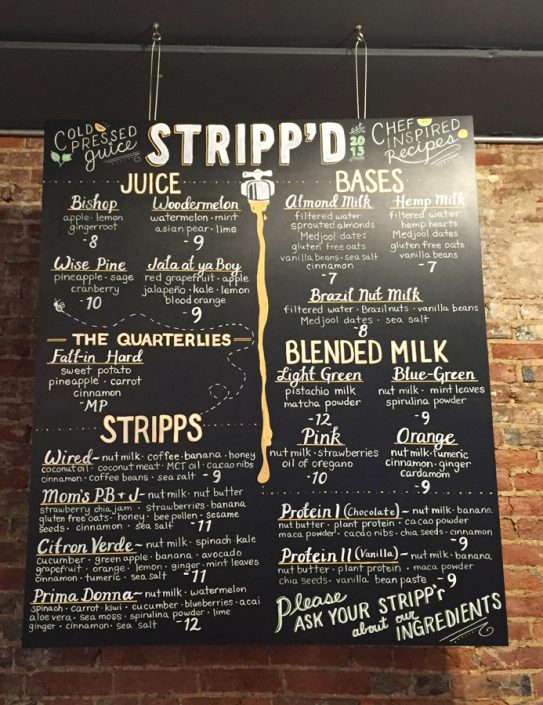 COLD PRESSED juice
STRIPP'D
est. 2015
CHEF INSPIRED Recipes
JUICE
Bishop
apple · lemon
gingerroot
-8
Woodermelon
watermelon · mint
asian pear · lime
-9
Wise Pine
pineapple · sage
cranberry
-10
Jala at ya Boy
red grapefruit · apple
jalapeño · kale · lemon
blood orange
9
- THE QUARTERLIES -
Fall-in Hard
sweet potato
pineapple · carrot
cinnamon
-MP
STRIPPS
Wired - nut milk · coffee · banana · honey
coconut oil · coconut meat · MCT oil · cacao nibs
cinnamon · coffee beans · sea salt - 9
Mom's PB + J - nut milk · nut butter
strawberry chia jam · strawberries · banana
gluten free oats · honey · bee pollen · sesame
seeds · cinnamon · sea salt - 11
Citron Verde - nut milk · spinach · kale
cucumber · green apple · banana · avocado
grapefruit · orange · lemon · ginger · mint leaves
cinnamon · tumeric · sea salt -11
Prima Donna - nut milk · watermelon
spinach · carrot · kiwi · cucumber · blueberries · acai
aloe vera · sea moss · spirulina powder · lime
ginger · cinnamon · sea salt -12
BASES
Almond Milk
filtered water
sprouted almonds
Medjool dates
gluten free oats
vanilla beans · sea salt
cinnamon
-7
Hemp Milk
filtered water
hemp hearts
Medjool dates
gluten free oats
vanilla beans
-7
Brazil Nut Milk
filtered water · Brazil nuts · vanilla beans
Medjool dates · sea salt
-8
BLENDED MILK
Light Green
pistachio milk
matcha powder
-12
Blue-Green
nut milk · mint leaves
spirulina powder
-9
Pink
nut milk · strawberries
oil of oregano
-10
Orange
nut milk · tumeric
cinnamon · ginger
cardamom
-9
Protein I (Chocolate) - nut milk · banana
nut butter · plant protein · cacao powder
maca powder · cacao nibs · chia seeds · cinnamon
-9
Protein II (Vanilla) - nut milk · banana
nut butter · plant protein · maca powder
chia seeds · vanilla bean paste - 9
Please
ASK YOUR STRIPP'r
about our
INGREDIENTS